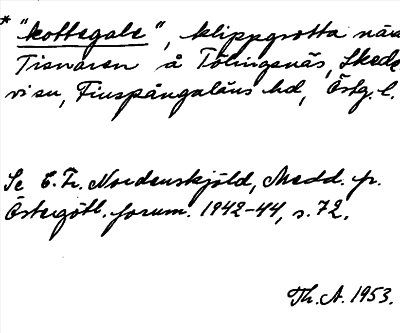 * "kottegale", klippgrotta nära
Tisnaren å Tölingsnäs, Skede-
vi sn, Finspångaläns hd, Östg. l.
Se C. Fr. Nordenskjöld, Medd. fr.
Östergötl. fornm. 1942-44, s. 72.
Th. A. 1953.